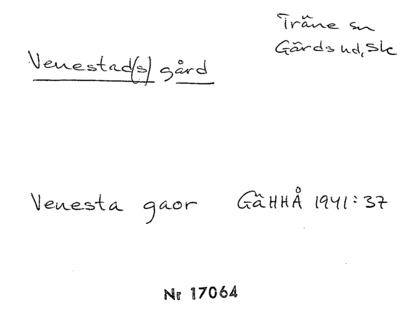 Träne sn
Gärds hd, Sk
Venestad(s) gård
Venesta gaor GäHHÅ 1941:37
Nr 17064